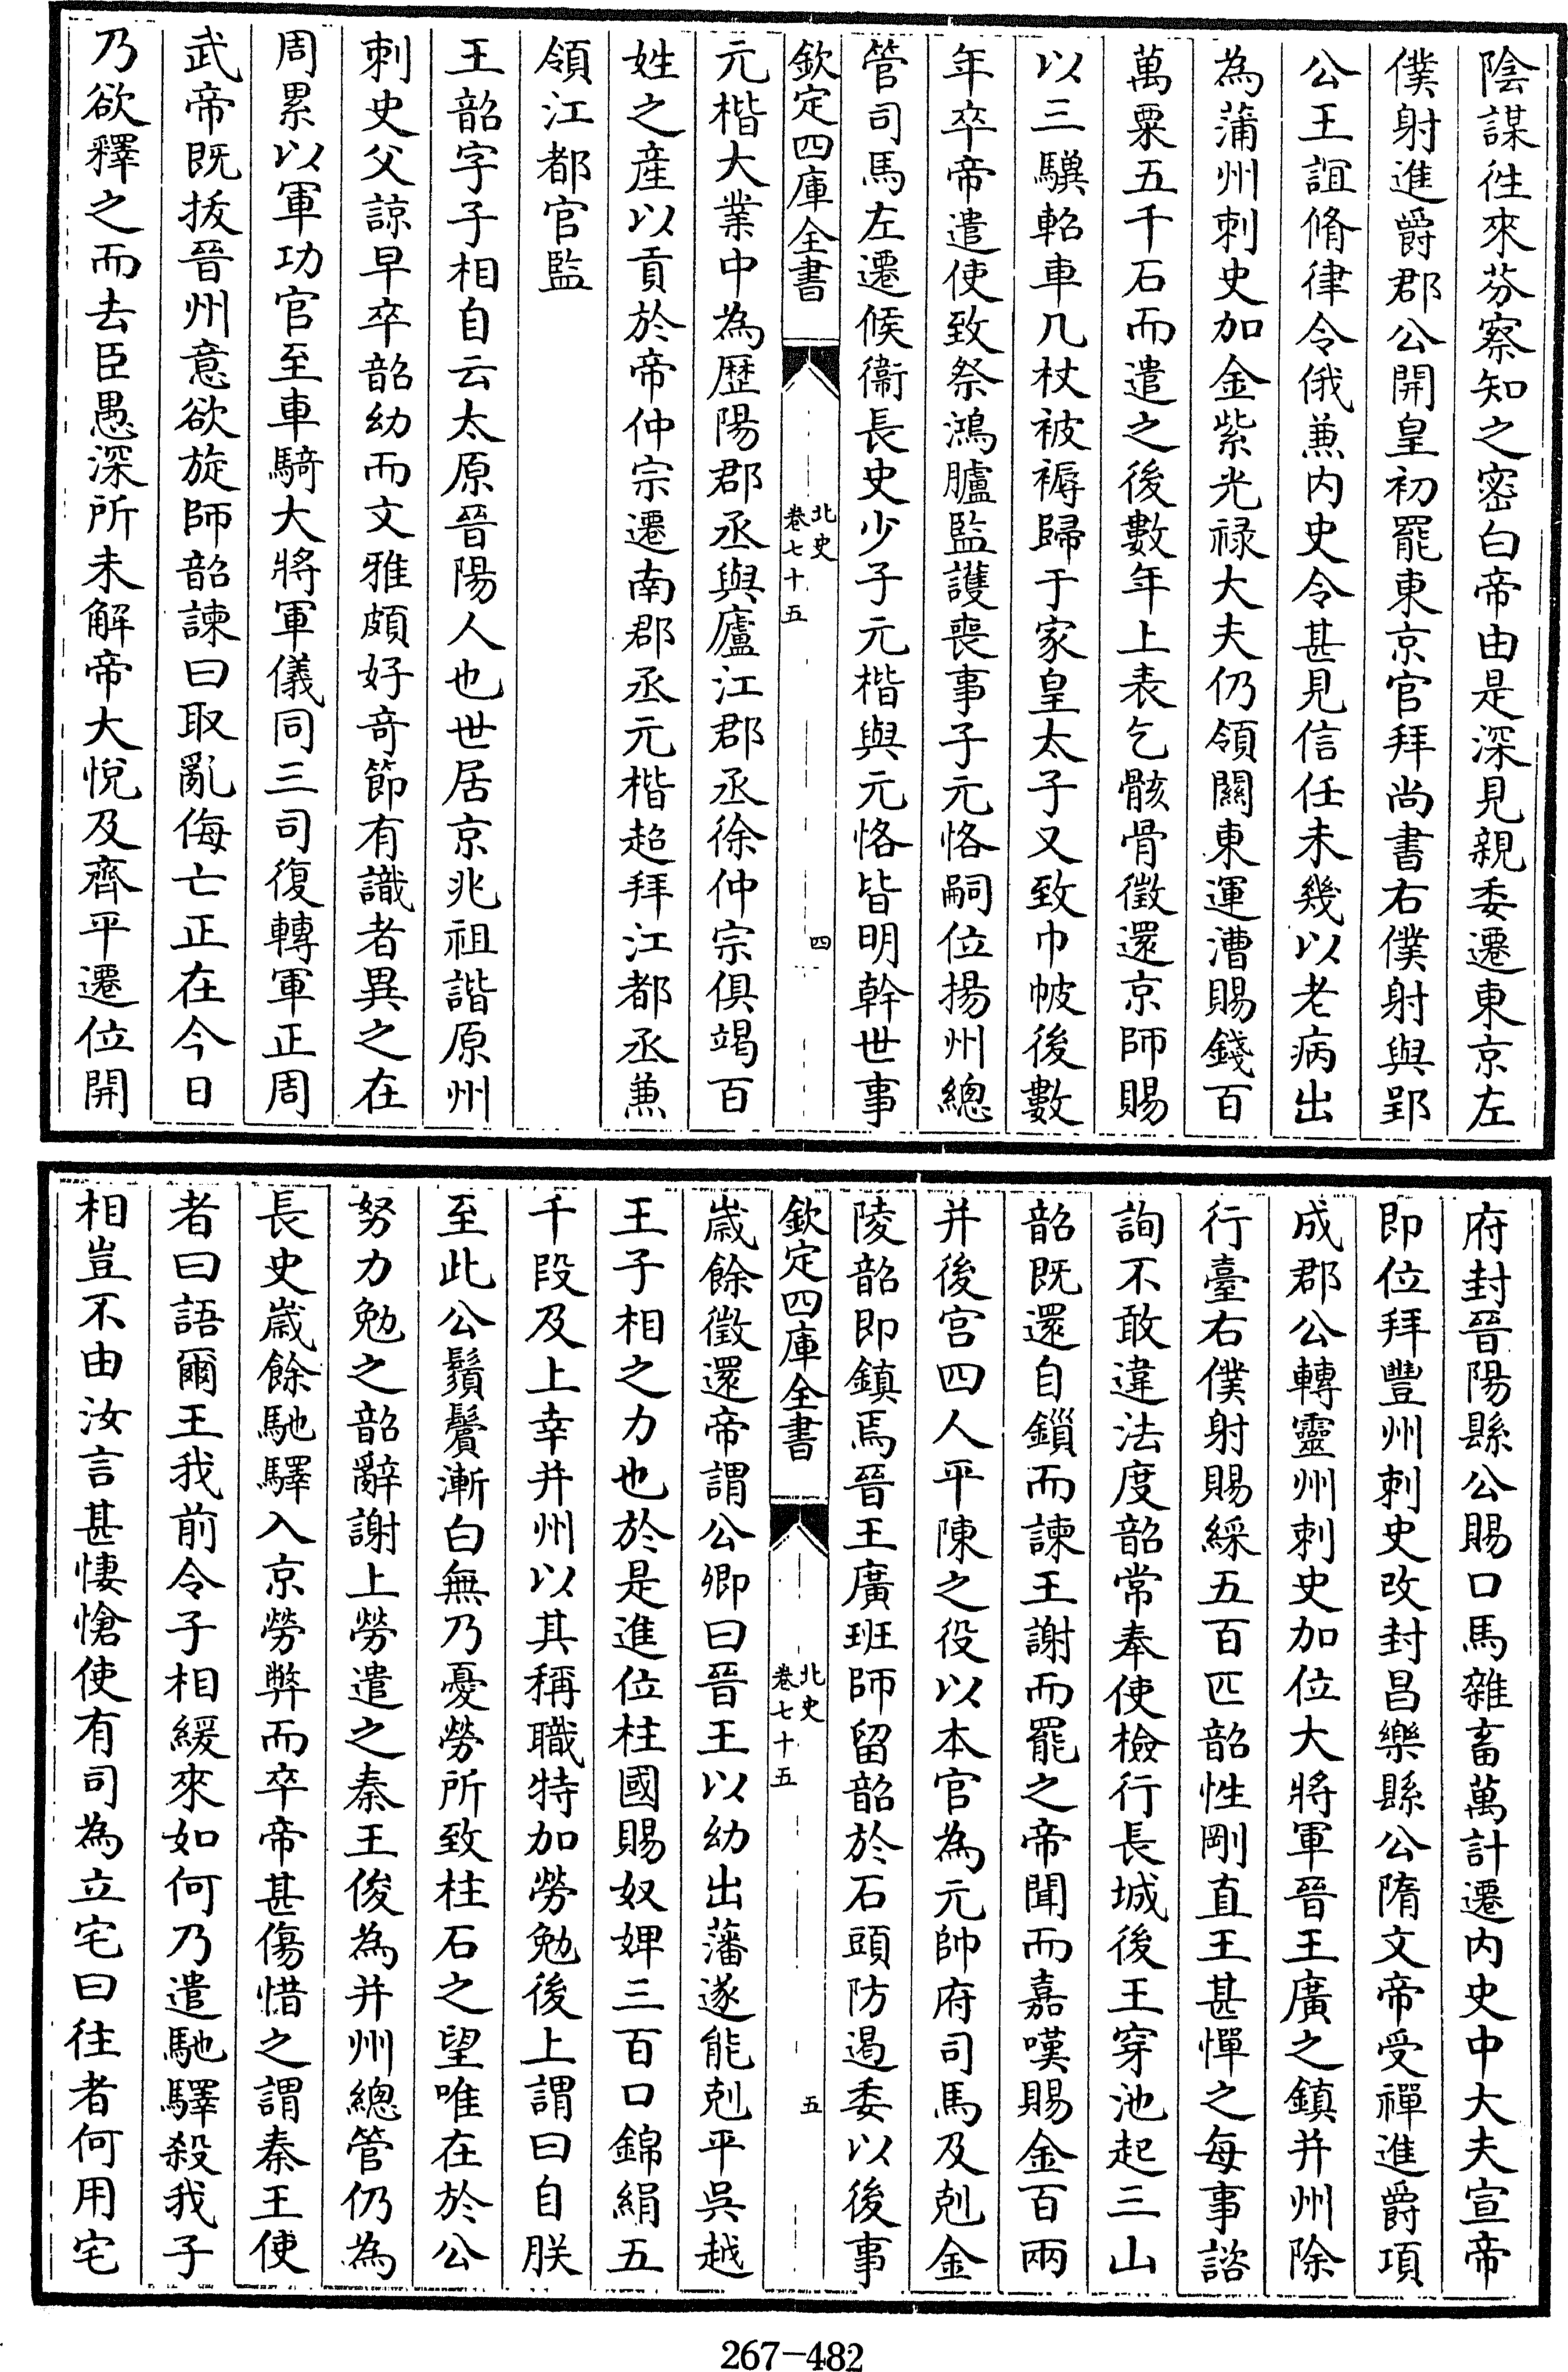 陰謀徃來芬察知之密白帝由是深見親委遷東京左
僕射進爵郡公開皇初罷東京官拜尚書右僕射與郢
公王誼脩律令俄兼内史令甚見信任未幾以老病出
為蒲州刺史加金紫光禄大夫仍領關東運漕賜錢百
萬粟五千石而遣之後數年上表乞骸骨徵還京師賜
以三驥軺車几杖被褥歸于家皇太子又致巾帔後數
年卒帝遣使致祭鴻臚監護喪事子元恪嗣位揚州總
管司馬左遷候衛長史少子元楷與元恪皆明幹世事
欽定四庫全書
北史
卷七十五
四
元楷大業中為歴陽郡丞與廬江郡丞徐仲宗俱竭百
姓之産以貢於帝仲宗遷南郡丞元楷超拜江都丞兼
領江都宫監
王韶字子相自云太原晉陽人也世居京兆祖諧原州
刺史父諒早卒韶幼而文雅頗好竒節有識者異之在
周累以軍功官至車騎大將軍儀同三司復轉軍正周
武帝既抜晉州意欲旋師韶諫曰取亂侮亡正在今日
乃欲釋之而去臣愚深所未解帝大悅及齊平遷位開
府封晉陽縣公賜口馬雜畜萬計遷内史中大夫宣帝
即位拜豐州刺史改封昌樂縣公隋文帝受禪進爵項
成郡公轉靈州刺史加位大將軍晉王廣之鎮并州除
行臺右僕射賜綵五百匹韶性剛直王甚憚之每事諮
詢不敢違法度韶常奉使檢行長城後王穿池起三山
韶既還自鎻而諫王謝而罷之帝聞而嘉嘆賜金百兩
并後宫四人平陳之役以本官為元帥府司馬及剋金
陵韶即鎮焉晉王廣班師留韶於石頭防遏委以後事
欽定四庫全書
北史
卷七十五
五
嵗餘徵還帝謂公卿曰晉王以幼出藩遂能剋平吳越
王子相之力也於是進位柱國賜奴婢三百口錦絹五
千段及上幸并州以其稱職特加勞勉後上謂曰自朕
至此公鬚鬢漸白無乃憂勞所致柱石之望唯在於公
努力勉之韶辭謝上勞遣之秦王俊為并州總管仍為
長史嵗餘馳驛入京勞弊而卒帝甚傷惜之謂秦王使
者曰語爾王我前令子相緩來如何乃遣馳驛殺我子
相豈不由汝言甚悽愴使有司為立宅曰往者何用宅
267-482